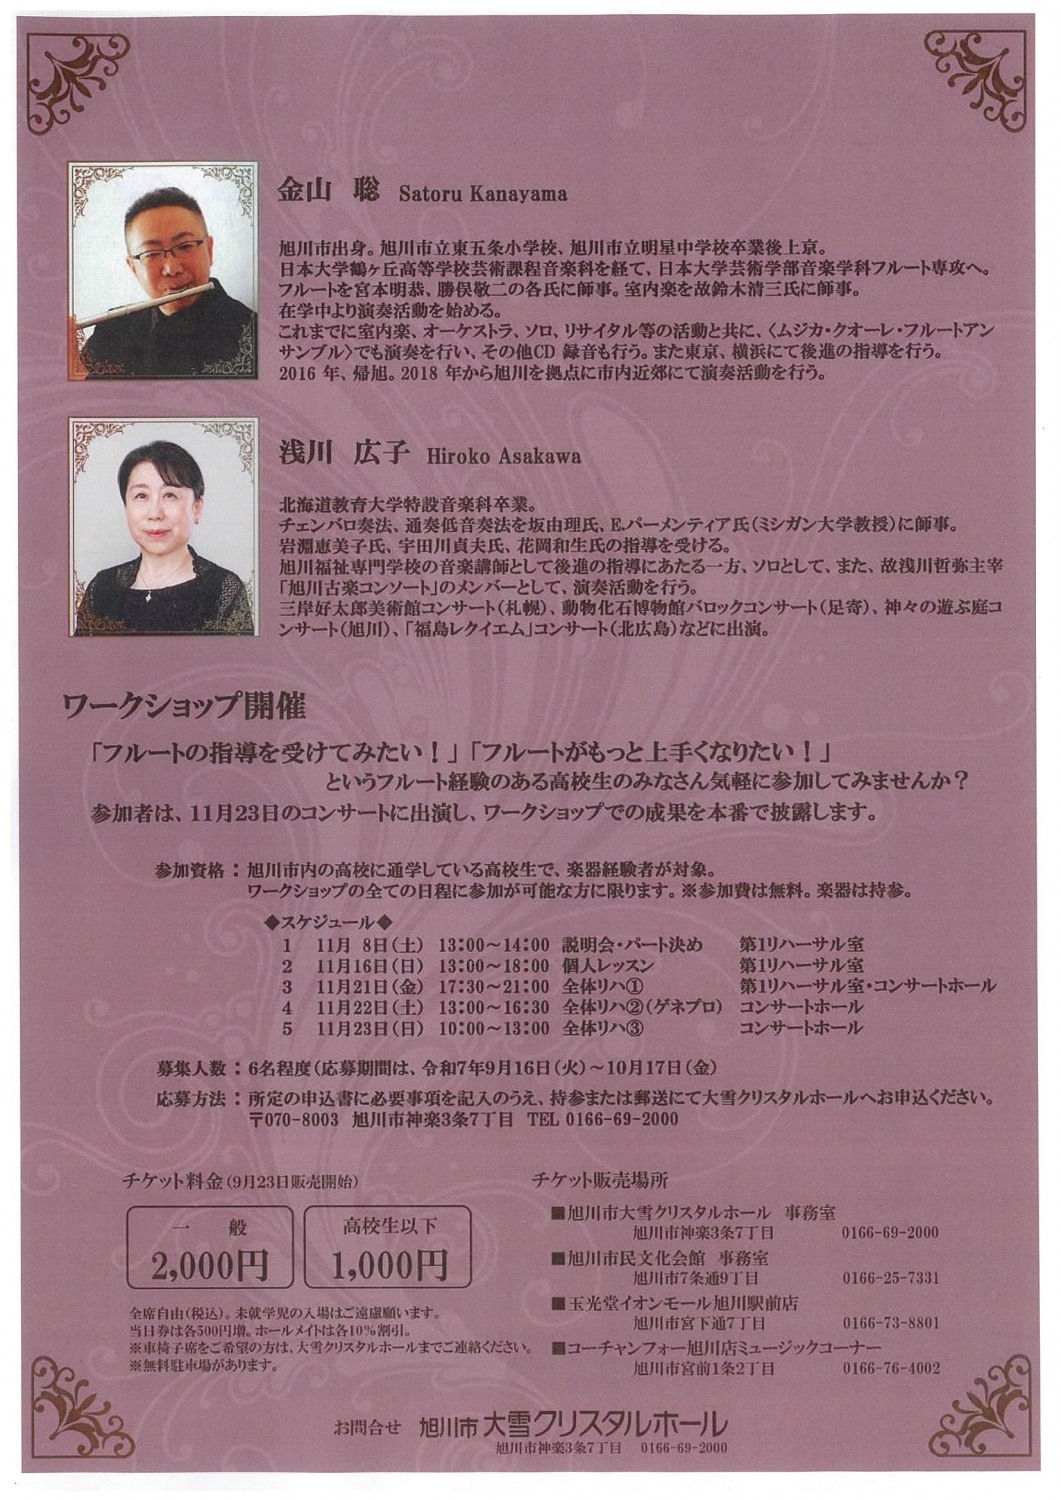 金山 聡 Satoru Kanayama
旭川市出身。旭川市立東五条小学校、旭川市立明星中学校卒業後上京。
日本大学鶴ヶ丘高等学校芸術課程音楽科を経て、日本大学芸術学部音楽学科フルート専攻へ。
フルートを宮本明恭、勝俣敬二の各氏に師事。室内楽を故鈴木清三氏に師事。
在学中より演奏活動を始める。
これまでに室内楽、オーケストラ、ソロ、リサイタル等の活動と共に、〈ムジカ・クオーレ・フルートアン
サンブル〉でも演奏を行い、その他CD 録音も行う。また東京、横浜にて後進の指導を行う。
2016 年、帰旭。2018 年から旭川を拠点に市内近郊にて演奏活動を行う。
浅川 広子 Hiroko Asakawa
北海道教育大学特設音楽科卒業。
チェンバロ奏法、通奏低音奏法を坂由理氏、E.パーメンティア氏(ミシガン大学教授)に師事。
岩淵恵美子氏、宇田川貞夫氏、花岡和生氏の指導を受ける。
旭川福祉専門学校の音楽講師として後進の指導にあたる一方、ソロとして、また、故浅川哲弥主宰
「旭川古楽コンソート」のメンバーとして、演奏活動を行う。
三岸好太郎美術館コンサート(札幌)、動物化石博物館バロックコンサート(足寄)、神々の遊ぶ庭コ
ンサート(旭川)、「福島レクイエム」コンサート(北広島)などに出演。
ワークショップ開催
「フルートの指導を受けてみたい！」「フルートがもっと上手くなりたい！」
というフルート経験のある高校生のみなさん気軽に参加してみませんか？
参加者は、11月23日のコンサートに出演し、ワークショップでの成果を本番で披露します。
参加資格：旭川市内の高校に通学している高校生で、楽器経験者が対象。
ワークショップの全ての日程に参加が可能な方に限ります。※参加費は無料。楽器は持参。
◆スケジュール◆
1 11月 8日(土) 13:00～14:00 説明会・パート決め 第1リハーサル室
2 11月16日(日) 13:00～18:00 個人レッスン 第1リハーサル室
3 11月21日(金) 17:30～21:00 全体リハ① 第1リハーサル室・コンサートホール
4 11月22日(土) 13:00～16:30 全体リハ②(ゲネプロ) コンサートホール
5 11月23日(日) 10:00～13:00 全体リハ③ コンサートホール
募集人数：6名程度(応募期間は、令和7年9月16日(火)～10月17日(金)
応募方法：所定の申込書に必要事項を記入のうえ、持参または郵送にて大雪クリスタルホールへお申込ください。
〒070-8003 旭川市神楽3条7丁目 TEL 0166-69-2000
チケット料金(9月23日販売開始)
一 般
2,000円
高校生以下
1,000円
全席自由(税込)。未就学児の入場はご遠慮願います。
当日券は各500円増。ホールメイトは各10％割引。
※車椅子席をご希望の方は、大雪クリスタルホールまでご連絡ください。
※無料駐車場があります。
チケット販売場所
■旭川市大雪クリスタルホール 事務室
旭川市神楽3条7丁目 0166-69-2000
■旭川市民文化会館 事務室
旭川市7条通9丁目 0166-25-7331
■玉光堂イオンモール旭川駅前店
旭川市宮下通7丁目 0166-73-8801
■コーチャンフォー旭川店ミュージックコーナー
旭川市宮前1条2丁目 0166-76-4002
お問合せ 旭川市 大雪クリスタルホール
旭川市神楽3条7丁目 0166-69-2000